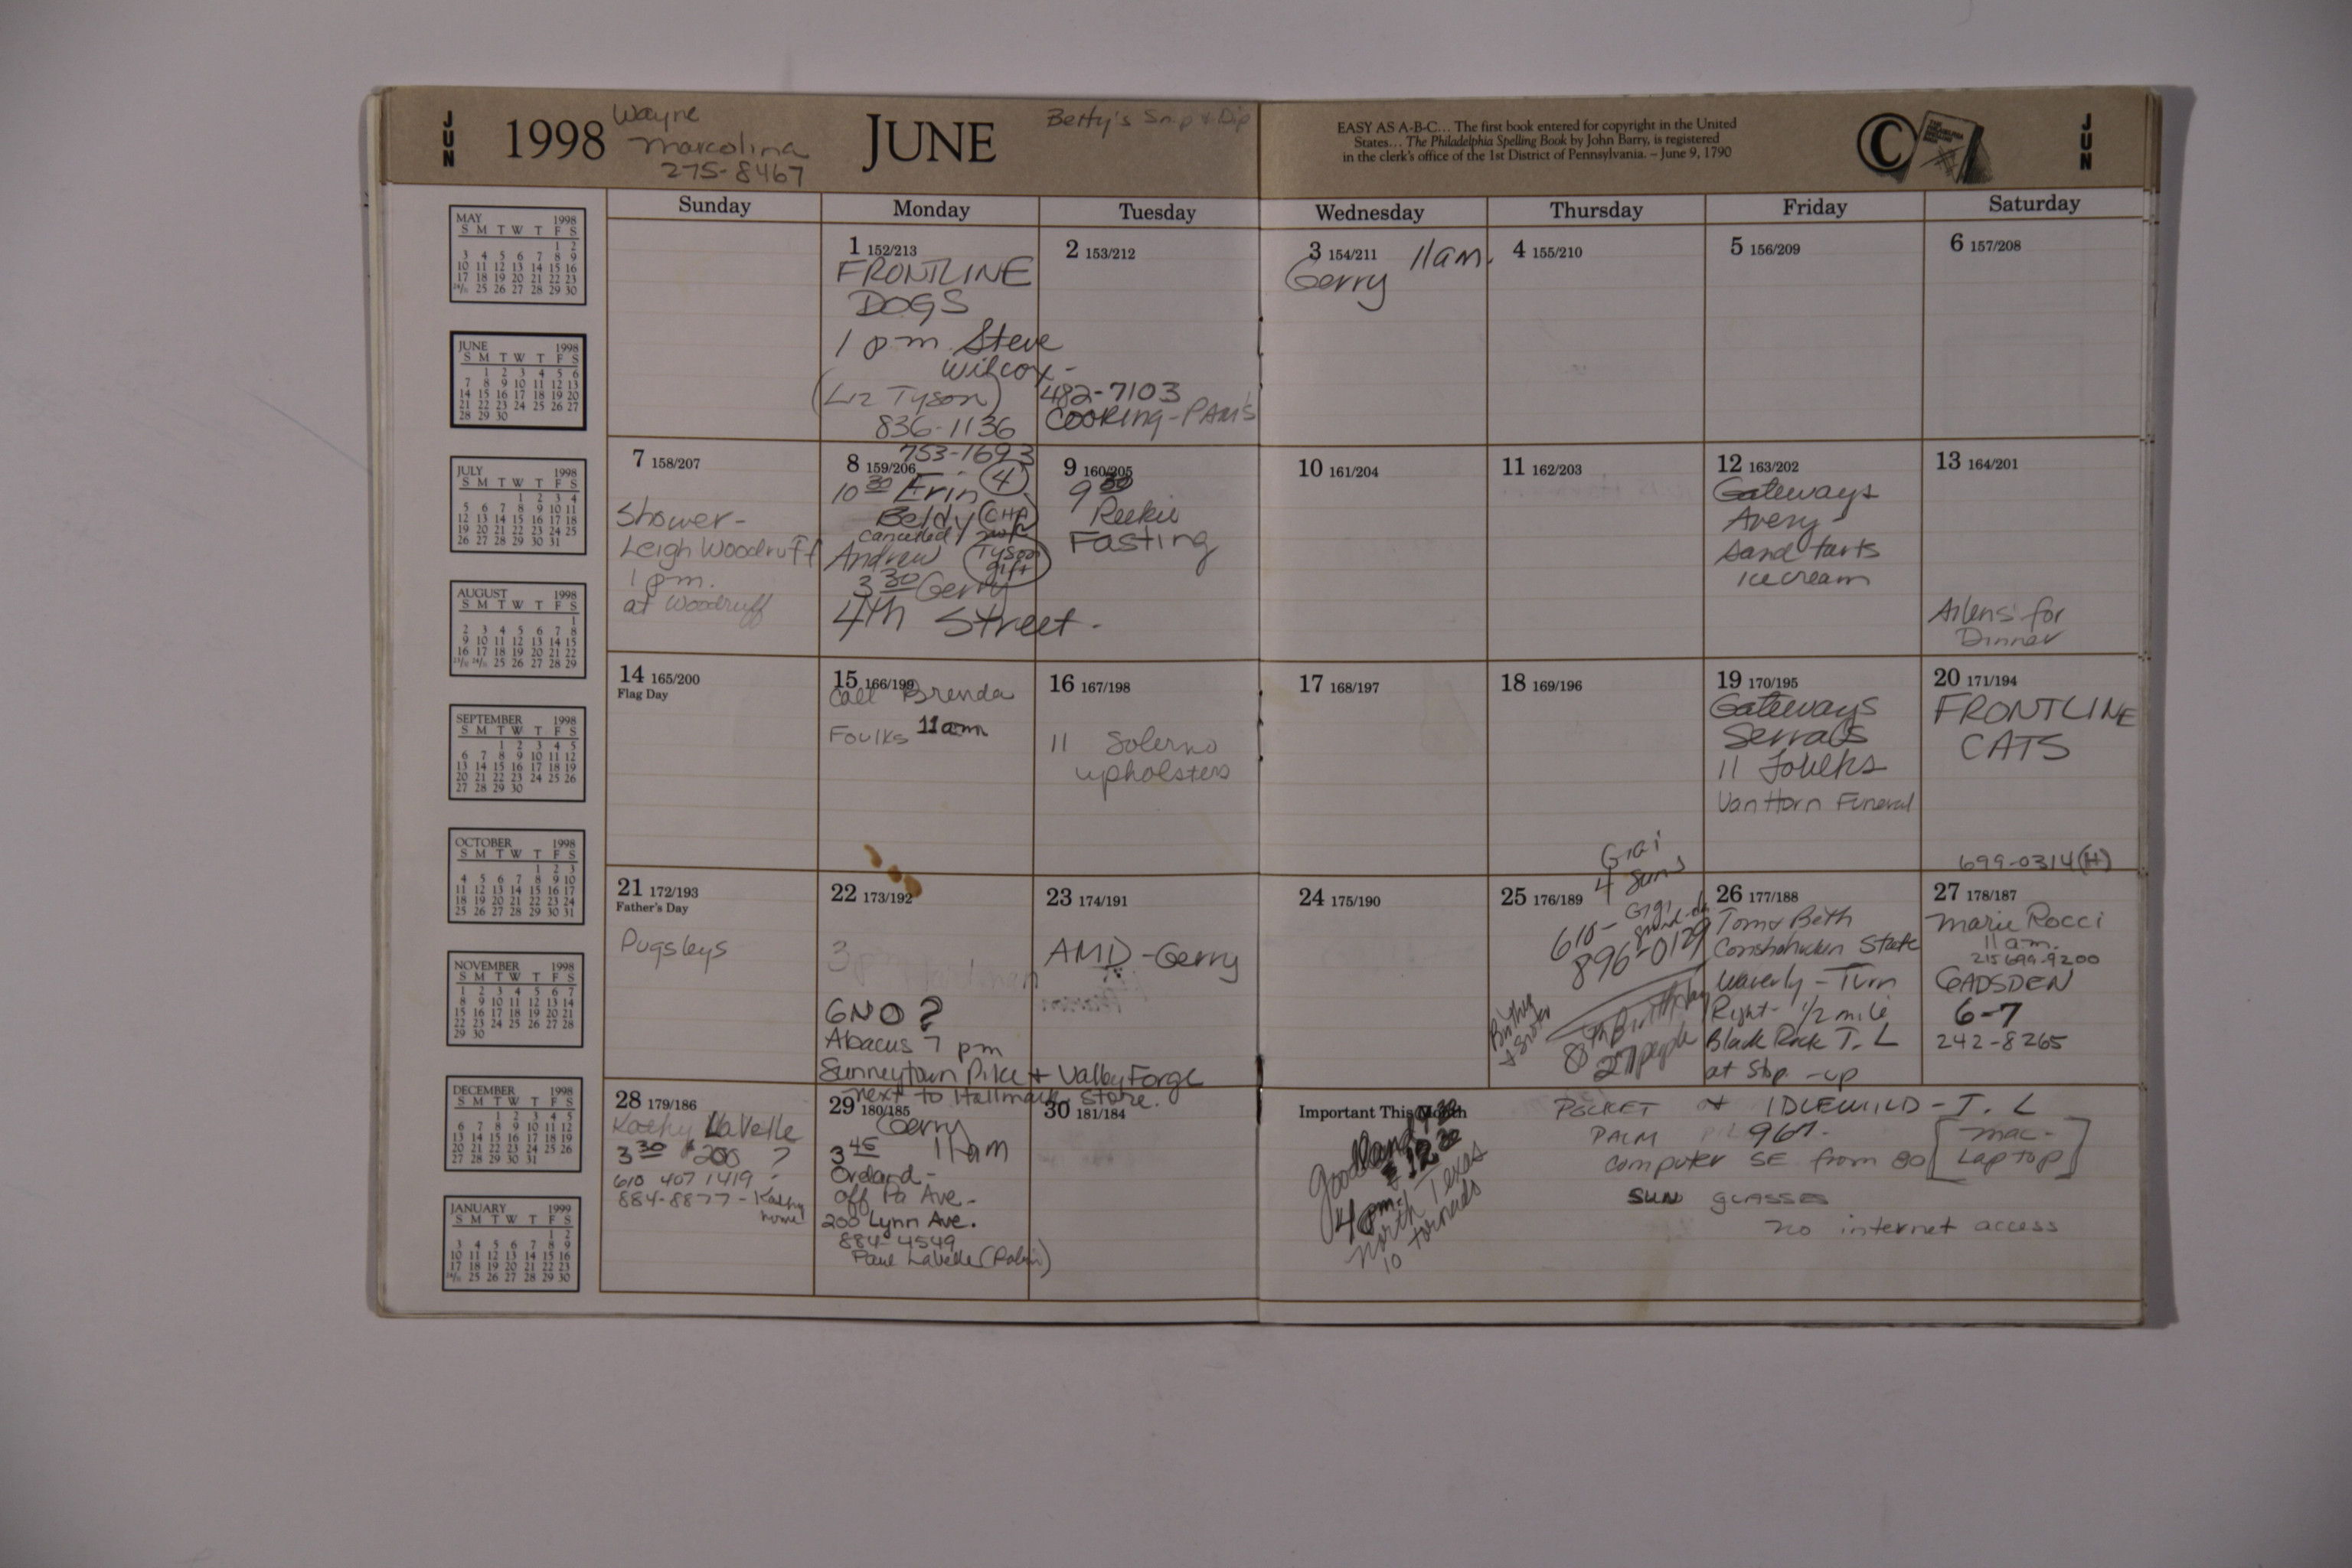 JUN
1998
Wayne
Marcolina
275-8467
JUNE
Betty's Snip & Dip
EASY AS A-B-C... The first book entered for copyright in the United
States... The Philadelphia Spelling Book by John Barry, is registered
in the clerk's office of the 1st District of Pennsylvania. – June 9, 1790
©
JUN
Sunday Monday Tuesday Wednesday Thursday Friday Saturday
1 152/213
FRONTLINE
DOGS
1 pm Steve
Wilcox -
482-7103
(Liz Tyson)
836-1136
753-1693
2 153/212
COOKING-PAM'S
3 154/211 11am.
Gerry
4 155/210
5 156/209
6 157/208
7 158/207
Shower-
Leigh Woodruff
1 pm.
at Woodruff
8 159/206
10 30 Erin (4)
Beldy CHA
cancelled
Andrew
Tyson
gift
3 30 Gerry
4th Street -
9 160/205
9 30
Fasting
10 161/204
11 162/203
12 163/202
Gateways
Avery -
Sand tarts
ice cream
13 164/201
Ailens for
Dinner
14 165/200
Flag Day
15 166/199
Call Brenda
Foulks 11am
16 167/198
11 Solerno
upholsters
17 168/197
18 169/196
19 170/195
Gateways
11 Foulks
Van Horn Funeral
20 171/194
FRONTLINE
CATS
699-0314 (H)
21 172/193
Father's Day
Pugsleys
22 173/192
3 pm
GNO ?
Abacus 7 pm
Sunneytown Pike + Valley Forge
next to Hallmark store.
23 174/191
AMD - Gerry
24 175/190
25 176/189
Gigi
610-
896-0129
8th Birthday
27 people
26 177/188
Tom & Beth
Conshohocken State
Waverly - Turn
Right - 1/2 mile
Black Rock T. L
at Stop - up
27 178/187
Marie Rocci
11 am.
215 699-9200
GADSDEN
6-7
242-8265
28 179/186
Kathy LaVelle
3 30 $200 ?
610 407 1419
884-8877 - Kathy
home
29 180/185
Gerry
11 am
3 45
Oreland -
off Pa Ave -
200 Lynn Ave.
884-4549
Paul LaVelle (Palm)
30 181/184
Important This Month
Goodland 9 30
12 30
4 pm.
North Texas
10 tornados
POCKET IDLEWILD - T. L
PALM 967-
Computer SE from 80 [Mac-
Laptop]
SUN glasses
no internet access
MAY 1998
S M T W T F S
1 2
3 4 5 6 7 8 9
10 11 12 13 14 15 16
17 18 19 20 21 22 23
24/31 25 26 27 28 29 30
JUNE 1998
S M T W T F S
1 2 3 4 5 6
7 8 9 10 11 12 13
14 15 16 17 18 19 20
21 22 23 24 25 26 27
28 29 30
JULY 1998
S M T W T F S
1 2 3 4
5 6 7 8 9 10 11
12 13 14 15 16 17 18
19 20 21 22 23 24 25
26 27 28 29 30 31
AUGUST 1998
S M T W T F S
1
2 3 4 5 6 7 8
9 10 11 12 13 14 15
16 17 18 19 20 21 22
23/30 24/31 25 26 27 28 29
SEPTEMBER 1998
S M T W T F S
1 2 3 4 5
6 7 8 9 10 11 12
13 14 15 16 17 18 19
20 21 22 23 24 25 26
27 28 29 30
OCTOBER 1998
S M T W T F S
1 2 3
4 5 6 7 8 9 10
11 12 13 14 15 16 17
18 19 20 21 22 23 24
25 26 27 28 29 30 31
NOVEMBER 1998
S M T W T F S
1 2 3 4 5 6 7
8 9 10 11 12 13 14
15 16 17 18 19 20 21
22 23 24 25 26 27 28
29 30
DECEMBER 1998
S M T W T F S
1 2 3 4 5
6 7 8 9 10 11 12
13 14 15 16 17 18 19
20 21 22 23 24 25 26
27 28 29 30 31
JANUARY 1999
S M T W T F S
1 2
3 4 5 6 7 8 9
10 11 12 13 14 15 16
17 18 19 20 21 22 23
24/31 25 26 27 28 29 30